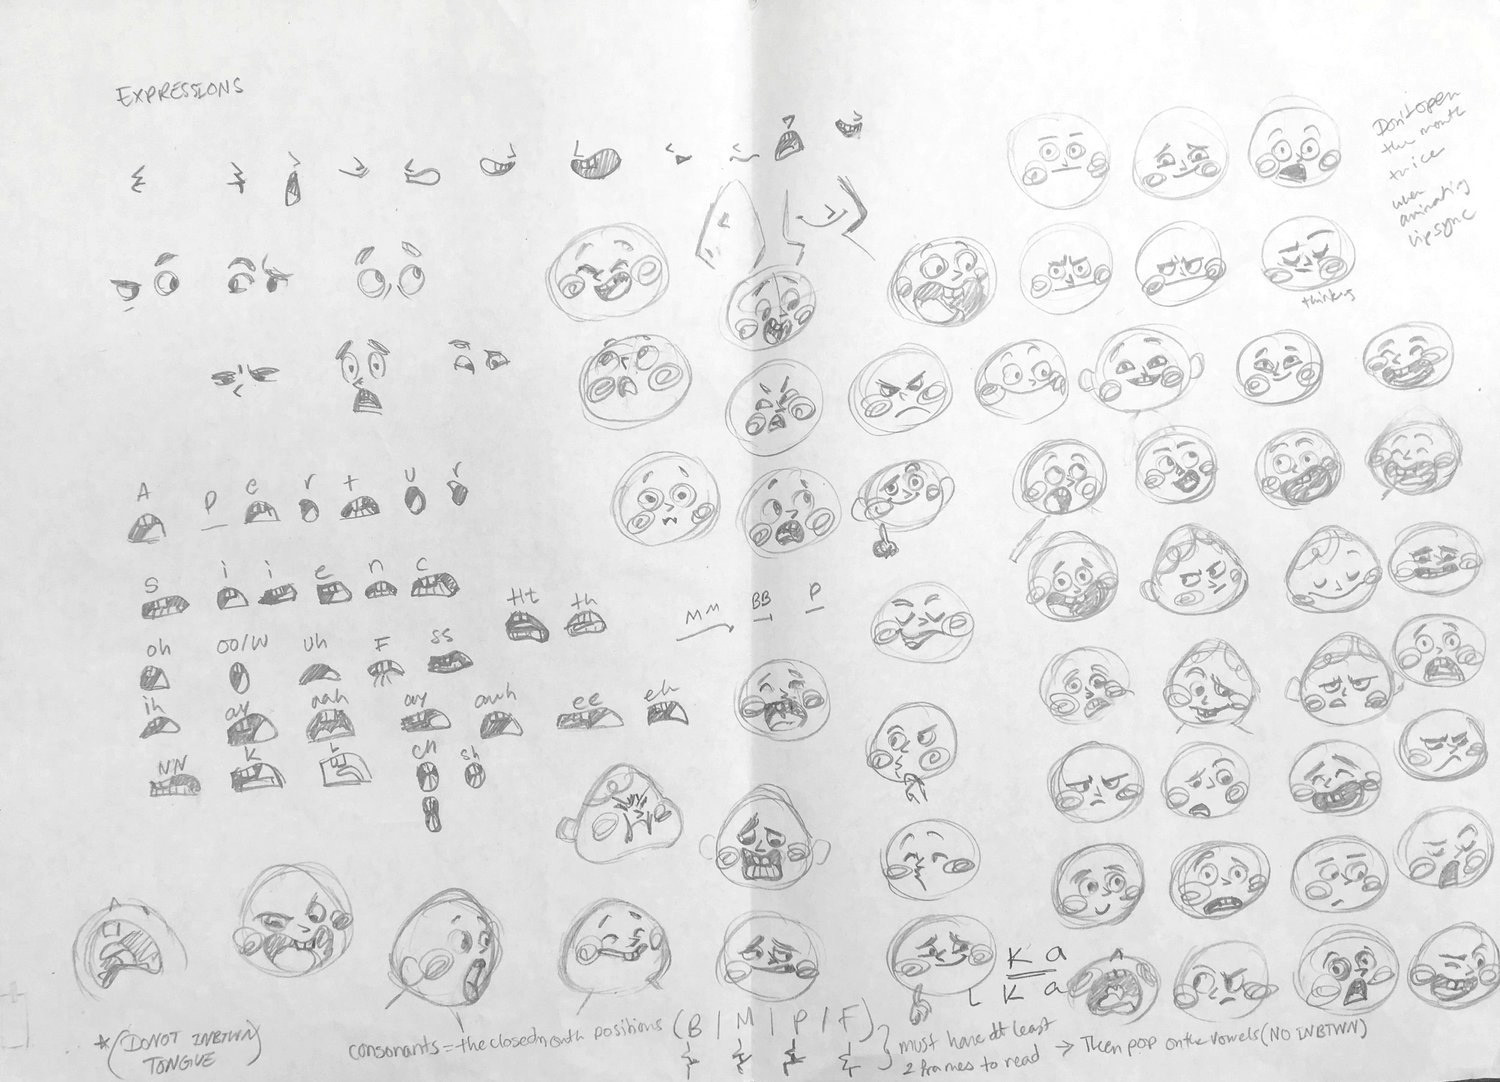 EXPRESSIONS
Don't open
the mouth
twice
when
animating
lipsync
thinking
A P e r t u r
S i i e n c
Ht th
MM BB P
oh oo/W uh F ss
ih ay aah ay awh ee eh
NN K L CH sh
K a
L K a
* (DO NOT INBTWN)
TONGUE
consonants = the closed mouth positions (B / M / P / F)
must have at least
2 frames to read
→ Then pop on the vowels (NO INBTWN)